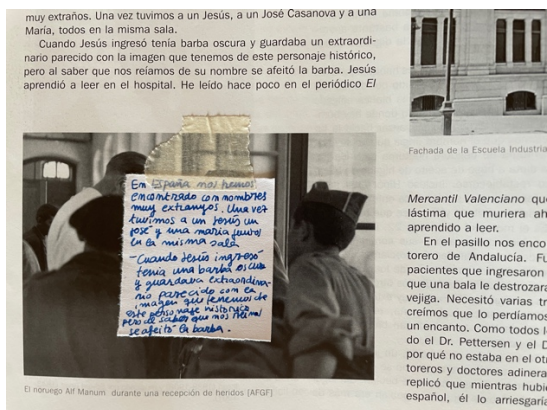 muy extraños. Una vez tuvimos a un Jesús, a un José Casanova y a una
María, todos en la misma sala.
Cuando Jesús ingresó tenía barba oscura y guardaba un extraordi-
nario parecido con la imagen que tenemos de este personaje histórico,
pero al saber que nos reíamos de su nombre se afeitó la barba. Jesús
aprendió a leer en el hospital. He leído hace poco en el periódico El
En España nos hemos
encontrado con nombres
muy extraños. Una vez
tuvimos a un Jesús un
José y una maría juntos
en la misma sala
-Cuando Jesús ingresó
tenía una barba oscura
y guardaba extraordina-
rio parecido con la
imagen que tenemos de
este personaje histórico
pero al saber que nos reímos
se afeitó la barba.
El noruego Alf Manum durante una recepción de heridos [AFGF]
Fachada de la Escuela Industria
Mercantil Valenciano que
lástima que muriera ah
aprendido a leer.
En el pasillo nos enco
torero de Andalucía. Fu
pacientes que ingresaron
que una bala le destrozara
vejiga. Necesitó varias tr
creímos que lo perdíamos
un encanto. Como todos l
do el Dr. Pettersen y el D
por qué no estaba en el otr
toreros y doctores adinera
replicó que mientras hubi
español, él lo arriesgaría